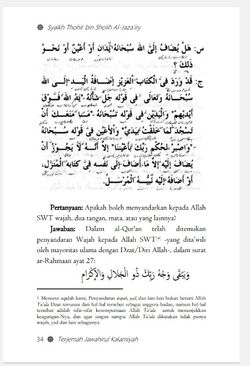 Syaikh Thohir bin Sholih Al-Jaza'iry
س: هَلْ يُضَافُ إِلَى اللهِ سُبْحَانَهُ يَدَانِ أَوْ أَعْيُنٌ أَوْ نَحْوُ
ذَلِكَ ؟
ج: قَدْ وَرَدَ فِي الْكِتَابِ الْعَزِيْزِ إِضَافَةُ الْيَدِ إِلَى اللهِ
سُبْحَانَهُ وَتَعَالَى فِي قَوْلِهِ جَلَّ شَأْنُهُ "يَدُ اللهِ فَوْقَ
أَيْدِيْهِمْ" وَالْيَدَيْنِ فِي قَوْلِهِ سُبْحَانَهُ
وَالْأَعْيُنِ فِي قَوْلِهِ سُبْحَانَهُ
"وَاصْبِرْ لِحُكْمِ رَبِّكَ فَإِنَّكَ بِأَعْيُنِنَا" إِلَّا أَنَّهُ لَا يَجُوْزُ أَنْ
يُضَافَ إِلَيْهِ إِلَّا مَا أَضَافَهُ إِلَى نَفْسِهِ فِي كِتَابِهِ الْمُنَزَّلِ،
أَوْ أَضَافَهُ إِلَيْهِ نَبِيُّهُ الْمُرْسَلُ.
Pertanyaan: Apakah boleh menyandarkan kepada Allah
SWT wajah, dua tangan, mata, atau yang lainnya?
Jawaban: Dalam al-Qur'an telah ditemukan
penyandaran Wajah kepada Allah SWT -yang dita'wili
oleh mayoritas ulama dengan Dzat/Diri Allah-, dalam surat
ar-Rahmaan ayat 27:
وَيَبْقَى وَجْهُ رَبِّكَ ذُو الْجَلَالِ وَالْإِكْرَامِ
Menurut aqidah kami; Penyandaran aqwal, yad dan lain-lain bukan berarti Allah
Ta'ala Dzat tersusun dari hal tersebut sebagai anggota badan, namun hal-hal
tersebut adalah sifat-sifat kesempurnaan Allah Ta'ala untuk menunjukkan
keagungan-Nya, dan agar jangan sampai Allah Ta'ala dikatakan tidak punya
wajah, yad dan lain sebagainya.
34 Terjemah Jawahirul Kalamiyah